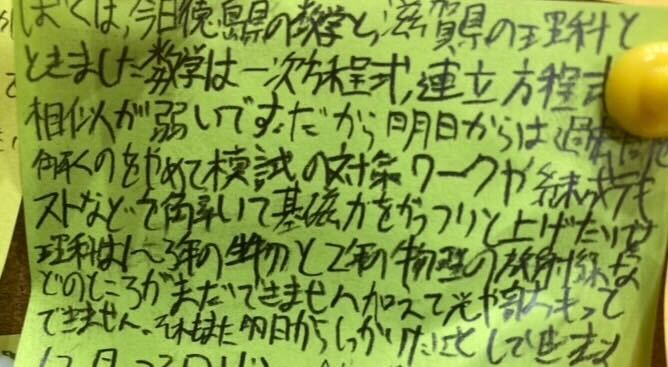 ぼくは、今日徳島県の数学と、滋賀県の理科と
ときました数学は一次方程式、連立方程式
相似が弱いです。だから明日からは過去問
解くのをやめて模試の対策ワークや
ストなどを解いて基礎力をがっつりと上げたいです
理科は1〜3年の生物と2年の物理の放射線な
どのところがまだできません加えて光や音もって
できません、それもまた明日からしっかり